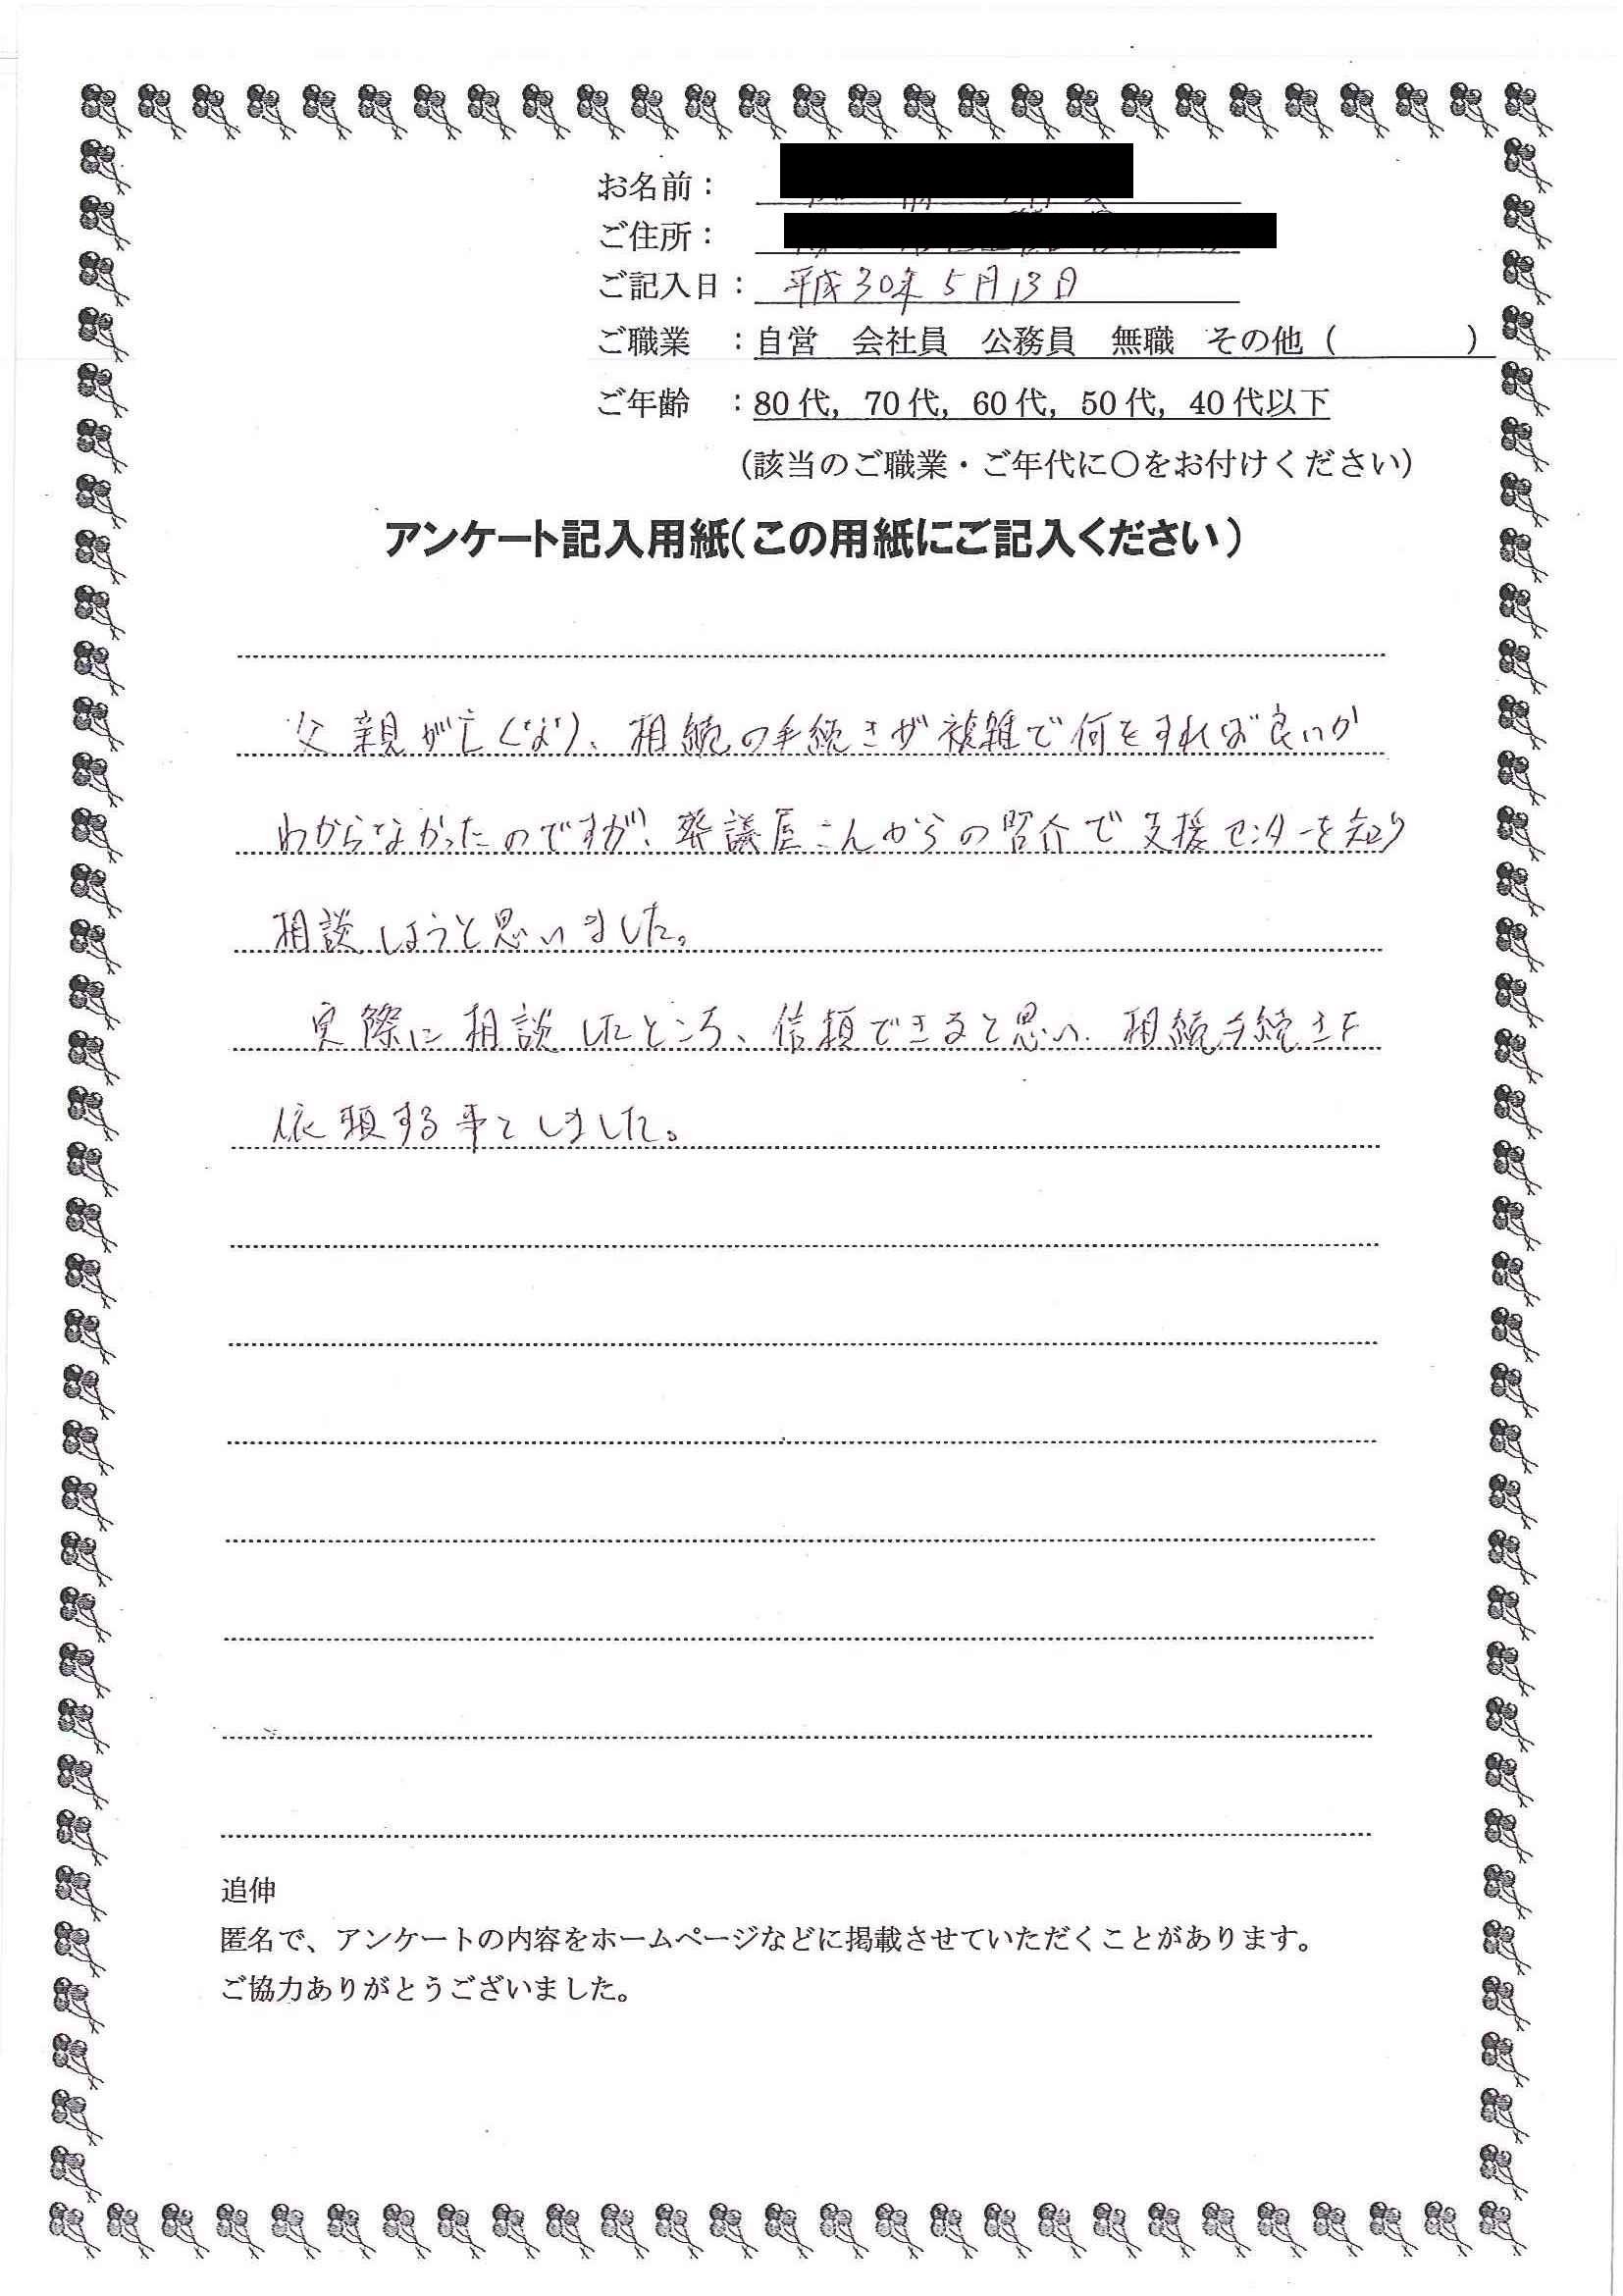 お名前：
ご住所：
ご記入日： 平成30年5月13日
ご職業 ：自営 会社員 公務員 無職 その他（ ）
ご年齢 ：80代，70代，60代，50代，40代以下
（該当のご職業・ご年代に〇をお付けください）
アンケート記入用紙（この用紙にご記入ください）
父親が亡くなり、相続の手続きが複雑で何をすれば良いか
わからなかったのですが、葬議屋さんからの紹介で支援センターを知り
相談しようと思いました。
実際に相談したところ、信頼できると思い、相続手続きを
依頼する事としました。
追伸
匿名で、アンケートの内容をホームページなどに掲載させていただくことがあります。
ご協力ありがとうございました。